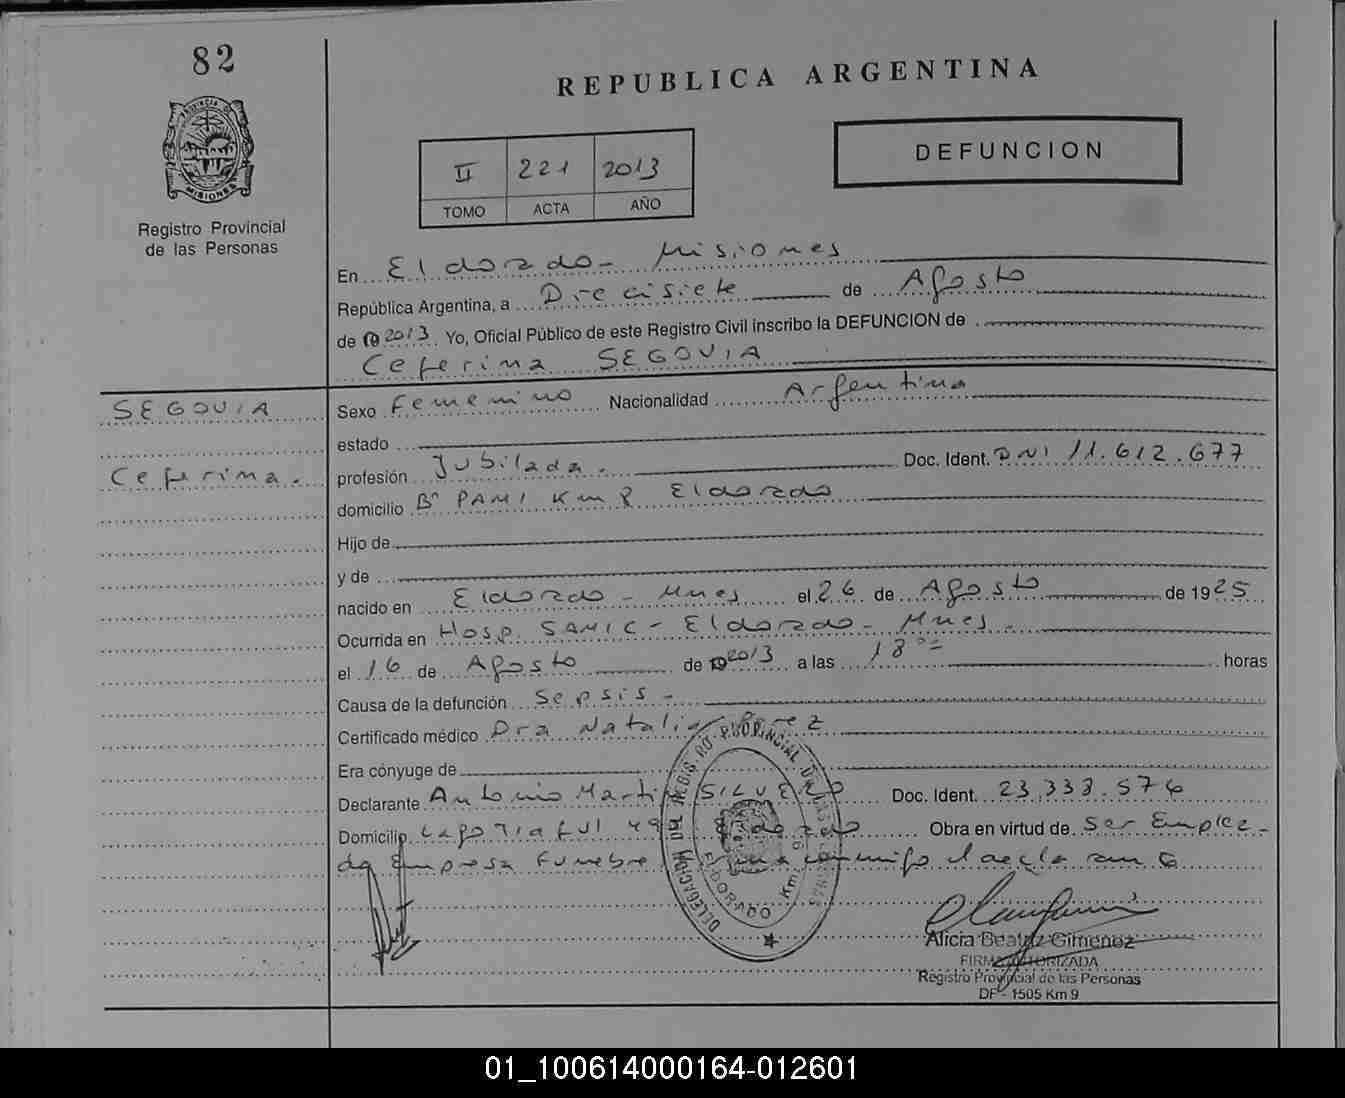 82
REPUBLICA ARGENTINA
PROVINCIA DE
MISIONES
Registro Provincial
de las Personas
II 221 2013
TOMO ACTA AÑO
DEFUNCION
En Eldorado - Misiones
República Argentina, a Diecisiete de Agosto
de 2013 Yo, Oficial Público de este Registro Civil inscribo la DEFUNCION de
Ceferina SEGOVIA
SEGOVIA
Ceferina.
Sexo Femenino Nacionalidad Argentina
estado
profesión Jubilada. Doc. Ident. DNI 11.612.677
domicilio Bº PAMI Km Eldorado
Hijo de
y de
nacido en Eldorado - Mnes el 26 de Agosto de 1925
Ocurrida en Hosp. SAMIC - Eldorado - Mnes.
el 16 de Agosto de 2013 a las 18 00 horas
Causa de la defunción Sepsis -
Certificado médico Dra Natalia Perez
Era cónyuge de
Declarante Antonio Martin SILVERO Doc. Ident. 23.338.576
Domicilio 49 Eldorado Obra en virtud de Ser Emplea-
do Empresa Funebre Firma conmigo el declarante
DELEGACION DEL REGISTRO PROVINCIAL DE LAS PERSONAS
ELDORADO Km
Alicia Beatriz Gimenez
FIRMA AUTORIZADA
Registro Provincial de las Personas
DF - 1505 Km 9
01_100614000164-012601